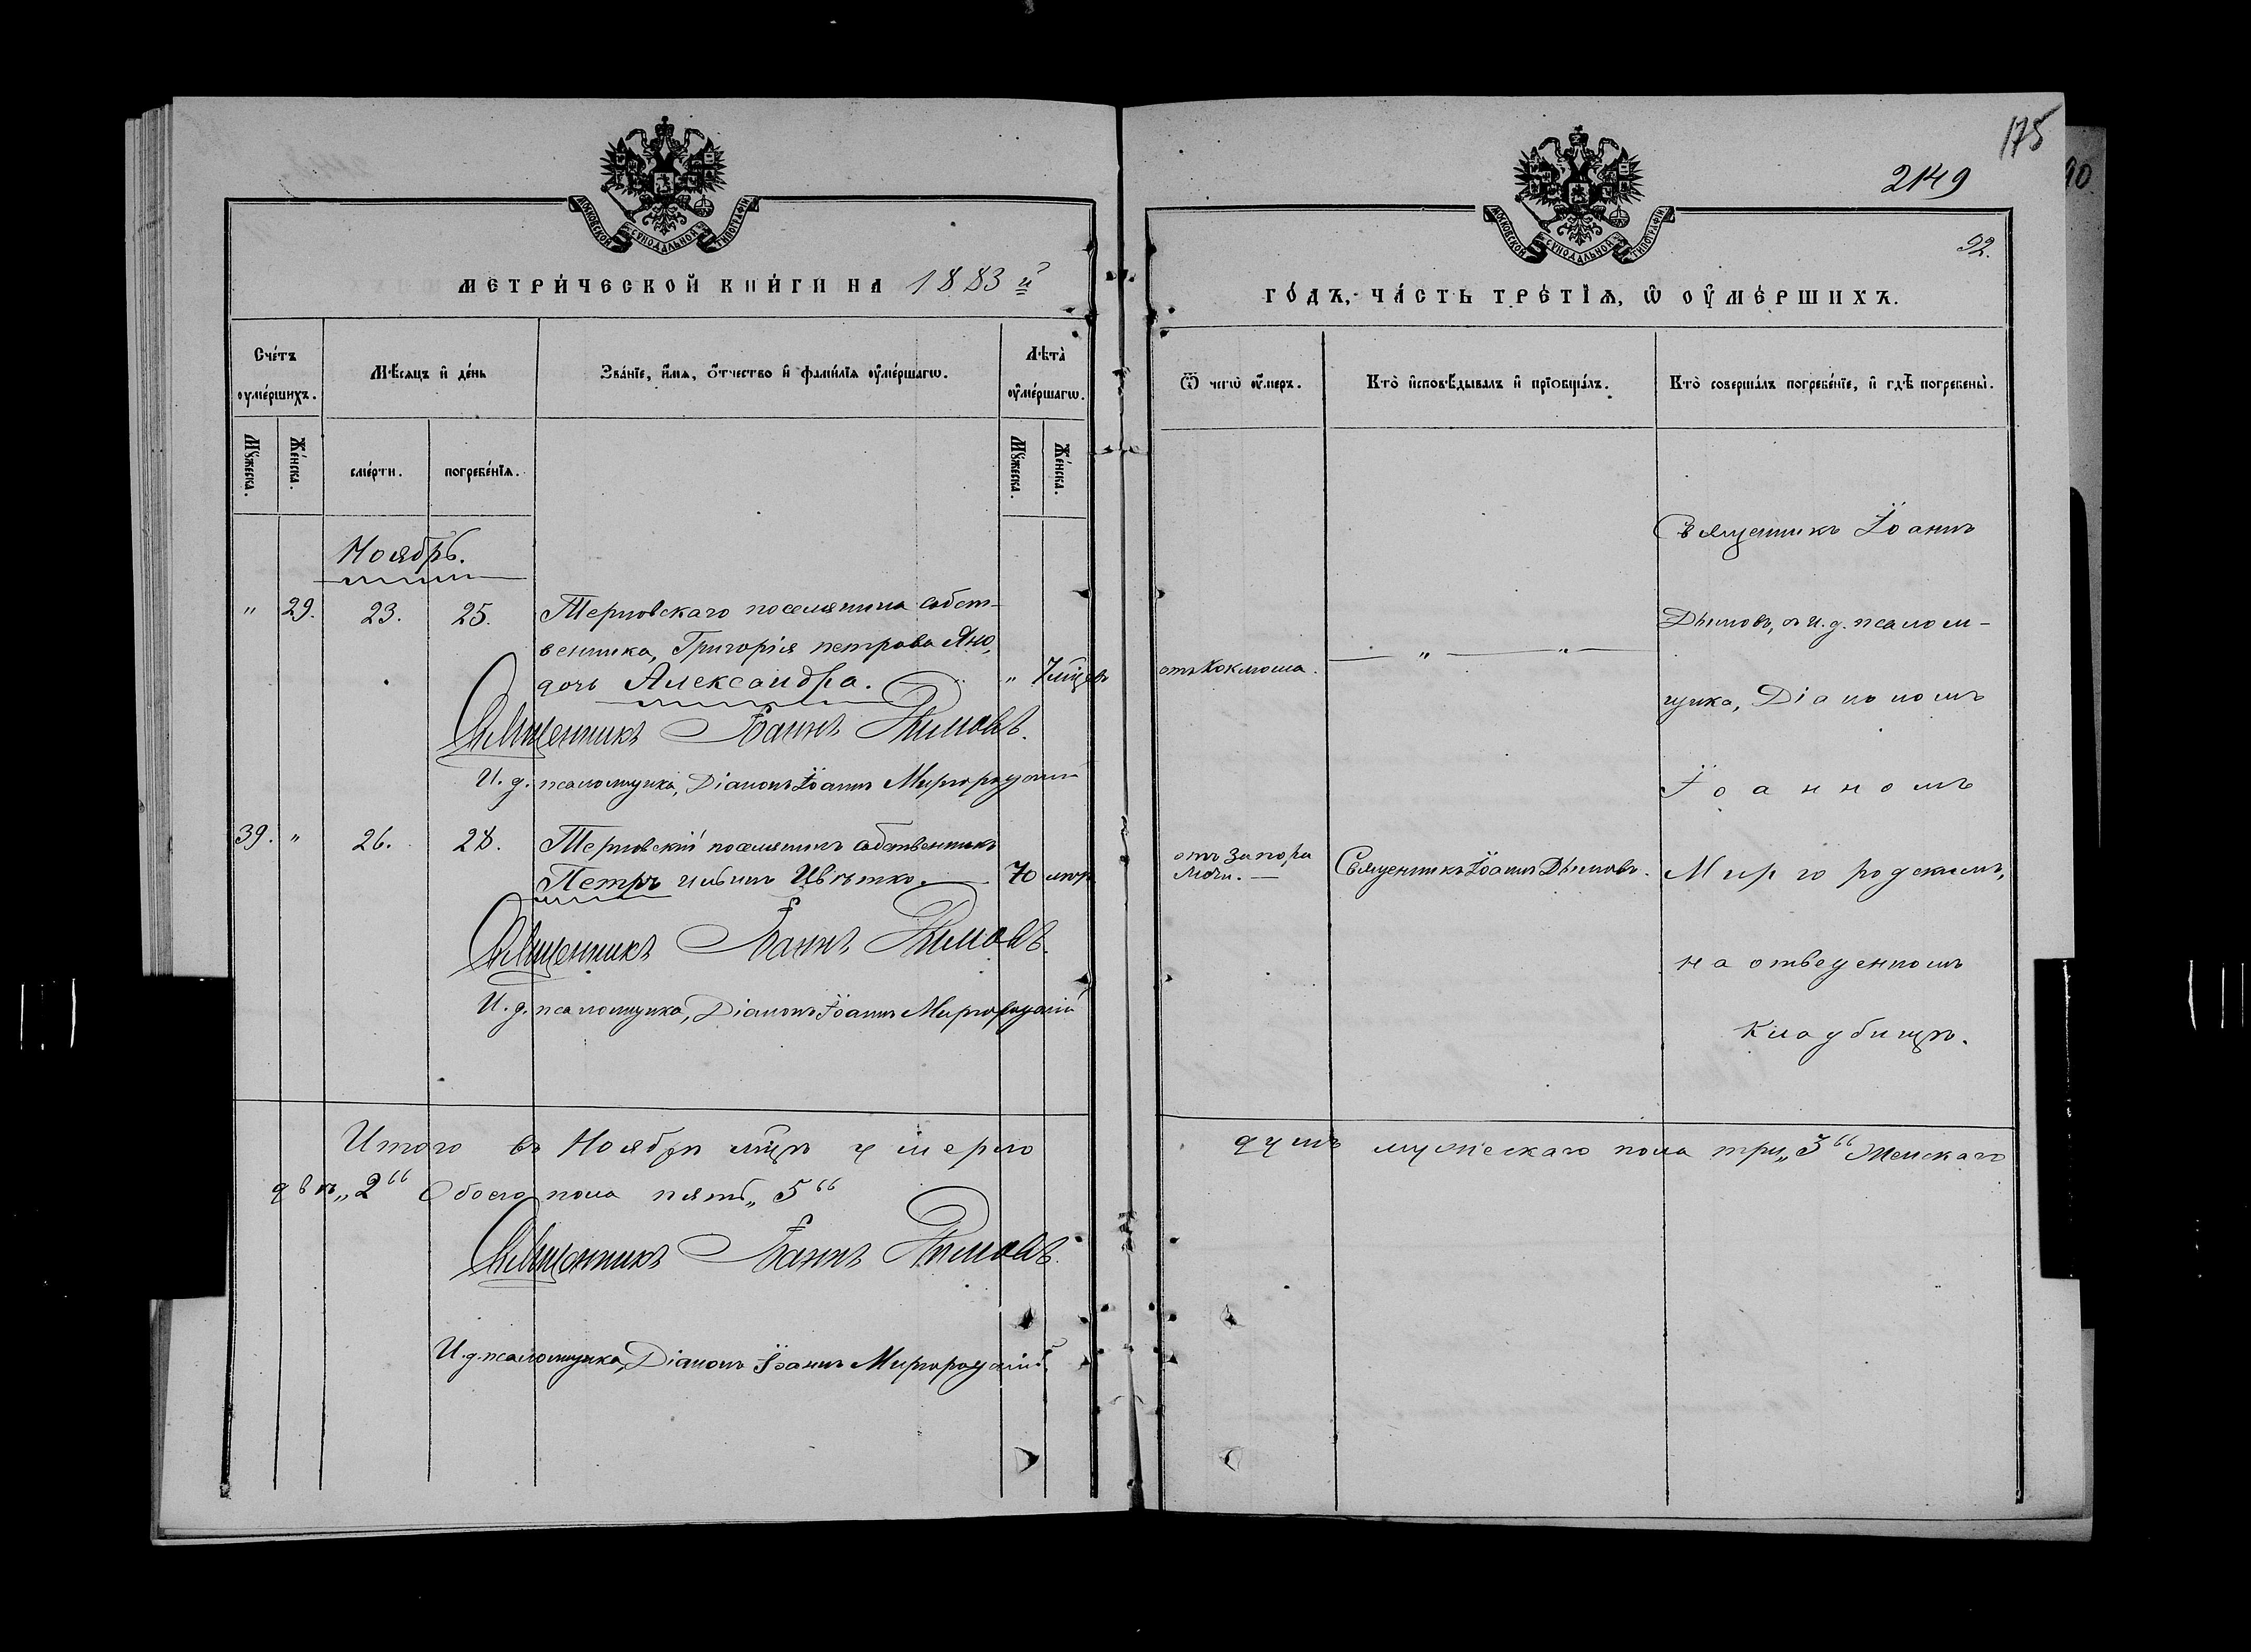 175
2149
92.
МОСКОВСКОЙ СѴНОДАЛЬНОЙ ТИПОГРАФІИ
МЕТРИ́ЧЕСКОЙ КНИ́ГИ НА 1883 й
Сче́тъ оу҆ме́ршихъ.
Мѣ́сяцъ и҆ де́нь
Зва́нїе, и҆́мѧ, ѻ҆́тчество и҆ фами́лїѧ оу҆ме́ршагѡ.
Лѣта̀ оу҆ме́ршагѡ.
Мꙋ́жеска.
Же́нска.
сме́рти.
погребе́нїѧ.
Мꙋ́жеска.
Же́нска.
Ноябрь.
" 29. 23. 25. Терновскаго поселянина собст-
венника, Григорія петрова Яно,
дочь Александра. " 7 мцев
Священникъ Іоаннъ Дымовъ.
И. д. псаломщика, Діаконъ Іоаннъ Миргородскій
39. " 26. 28. Терновскій поселянинъ собственникъ
Петръ ильинъ Цвѣтко. 70 лѣтъ
Священникъ Іоаннъ Дымовъ.
И. д. псаломщика, Діаконъ Іоаннъ Миргородскій
Итого въ Ноябрѣ мцѣ умерло
двѣ „2“ Обоего пола пять „5“
Священникъ Іоаннъ Дымовъ.
И. д. псаломщика, Діаконъ Іоаннъ Миргородскій.
МОСКОВСКОЙ СѴНОДАЛЬНОЙ ТИПОГРАФІИ
ГО́ДЪ, ЧА́СТЬ ТРЕ́ТЇѦ, Ѡ҆ ОУ҆МЕ́РШИХЪ.
Ѿ чегѡ̀ оу҆́меръ.
Кто̀ и҆сповѣ́дывалъ и҆ прїѡбща́лъ.
Кто̀ соверша́лъ погребе́нїе, и҆ гдѣ̀ погребены̀.
Священникъ Іоаннъ
Дымовъ, съ и. д. псалом-
отъ Коклюша. " "
щика, Діакономъ
Іоанномъ
отъ запора
мочи. Священникъ Іоаннъ Дымовъ. Миргородскимъ,
на отведенномъ
кладбищѣ.
душъ мужескаго пола три „3“ Женскаго